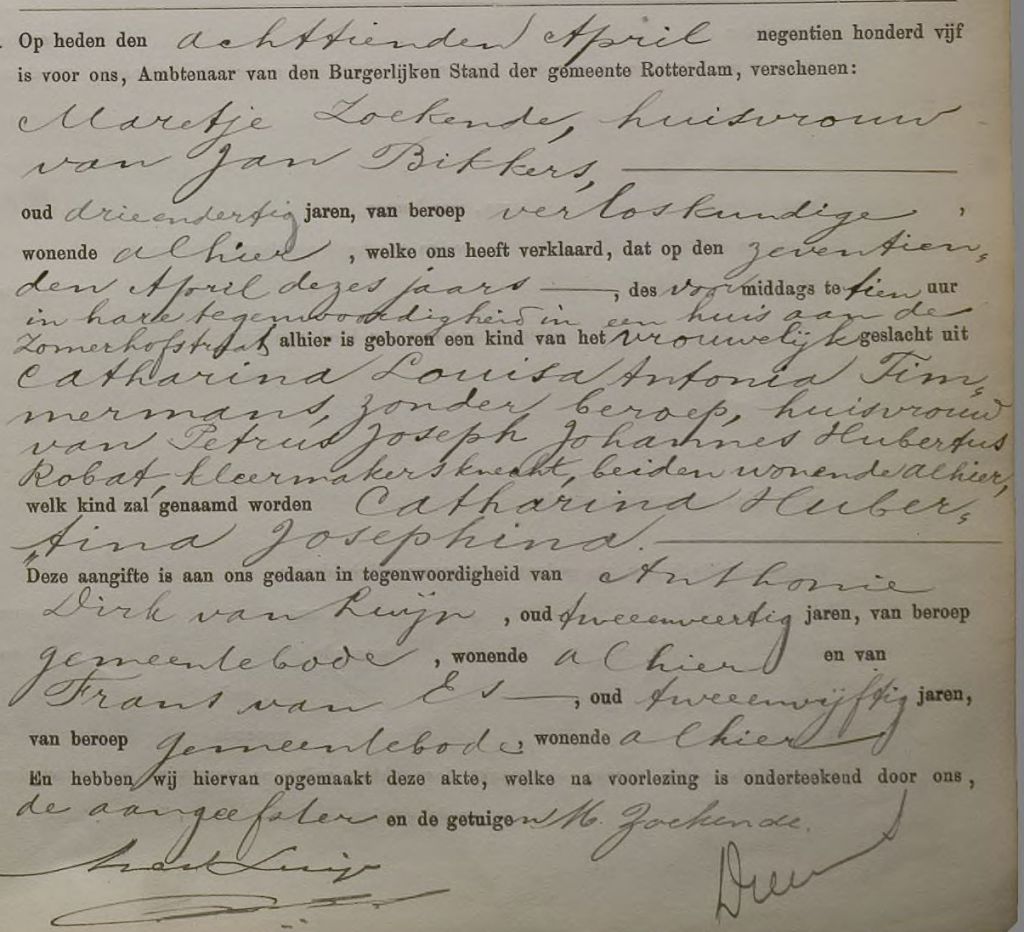 Op heden den achttienden April negentien honderd vijf
is voor ons, Ambtenaar van den Burgerlijken Stand der gemeente Rotterdam, verschenen:
Maretje Zoekende, huisvrouw
van Jan Bikkers,
oud drieendertig jaren, van beroep verloskundige,
wonende alhier, welke ons heeft verklaard, dat op den zeventien„
den April dezes jaars —, des voormiddags te tien uur
in hare tegenwoordigheid in een huis aan de
Zomerhofstraat alhier is geboren een kind van het vrouwelijk geslacht uit
Catharina Louisa Antonia Tim„
mermans, zonder beroep, huisvrouw
van Petrus Joseph Johannes Hubertus
Robat, kleermakersknecht, beiden wonende alhier,
welk kind zal genaamd worden Catharina Huber„
„tina Josephina.
Deze aangifte is aan ons gedaan in tegenwoordigheid van Anthonie
Dirk van Luijn, oud tweeenveertig jaren, van beroep
gemeentebode, wonende alhier en van
Frans van Es —, oud tweeenvijftig jaren,
van beroep gemeentebode, wonende alhier
En hebben wij hiervan opgemaakt deze akte, welke na voorlezing is onderteekend door ons,
de aangeefster en de getuigen M. Zoekende.